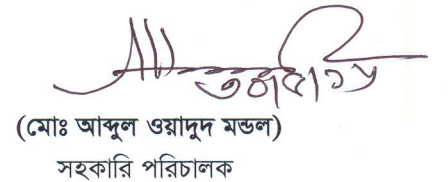 (মোঃ আব্দুল ওয়াদুদ মন্ডল)
সহকারি পরিচালক